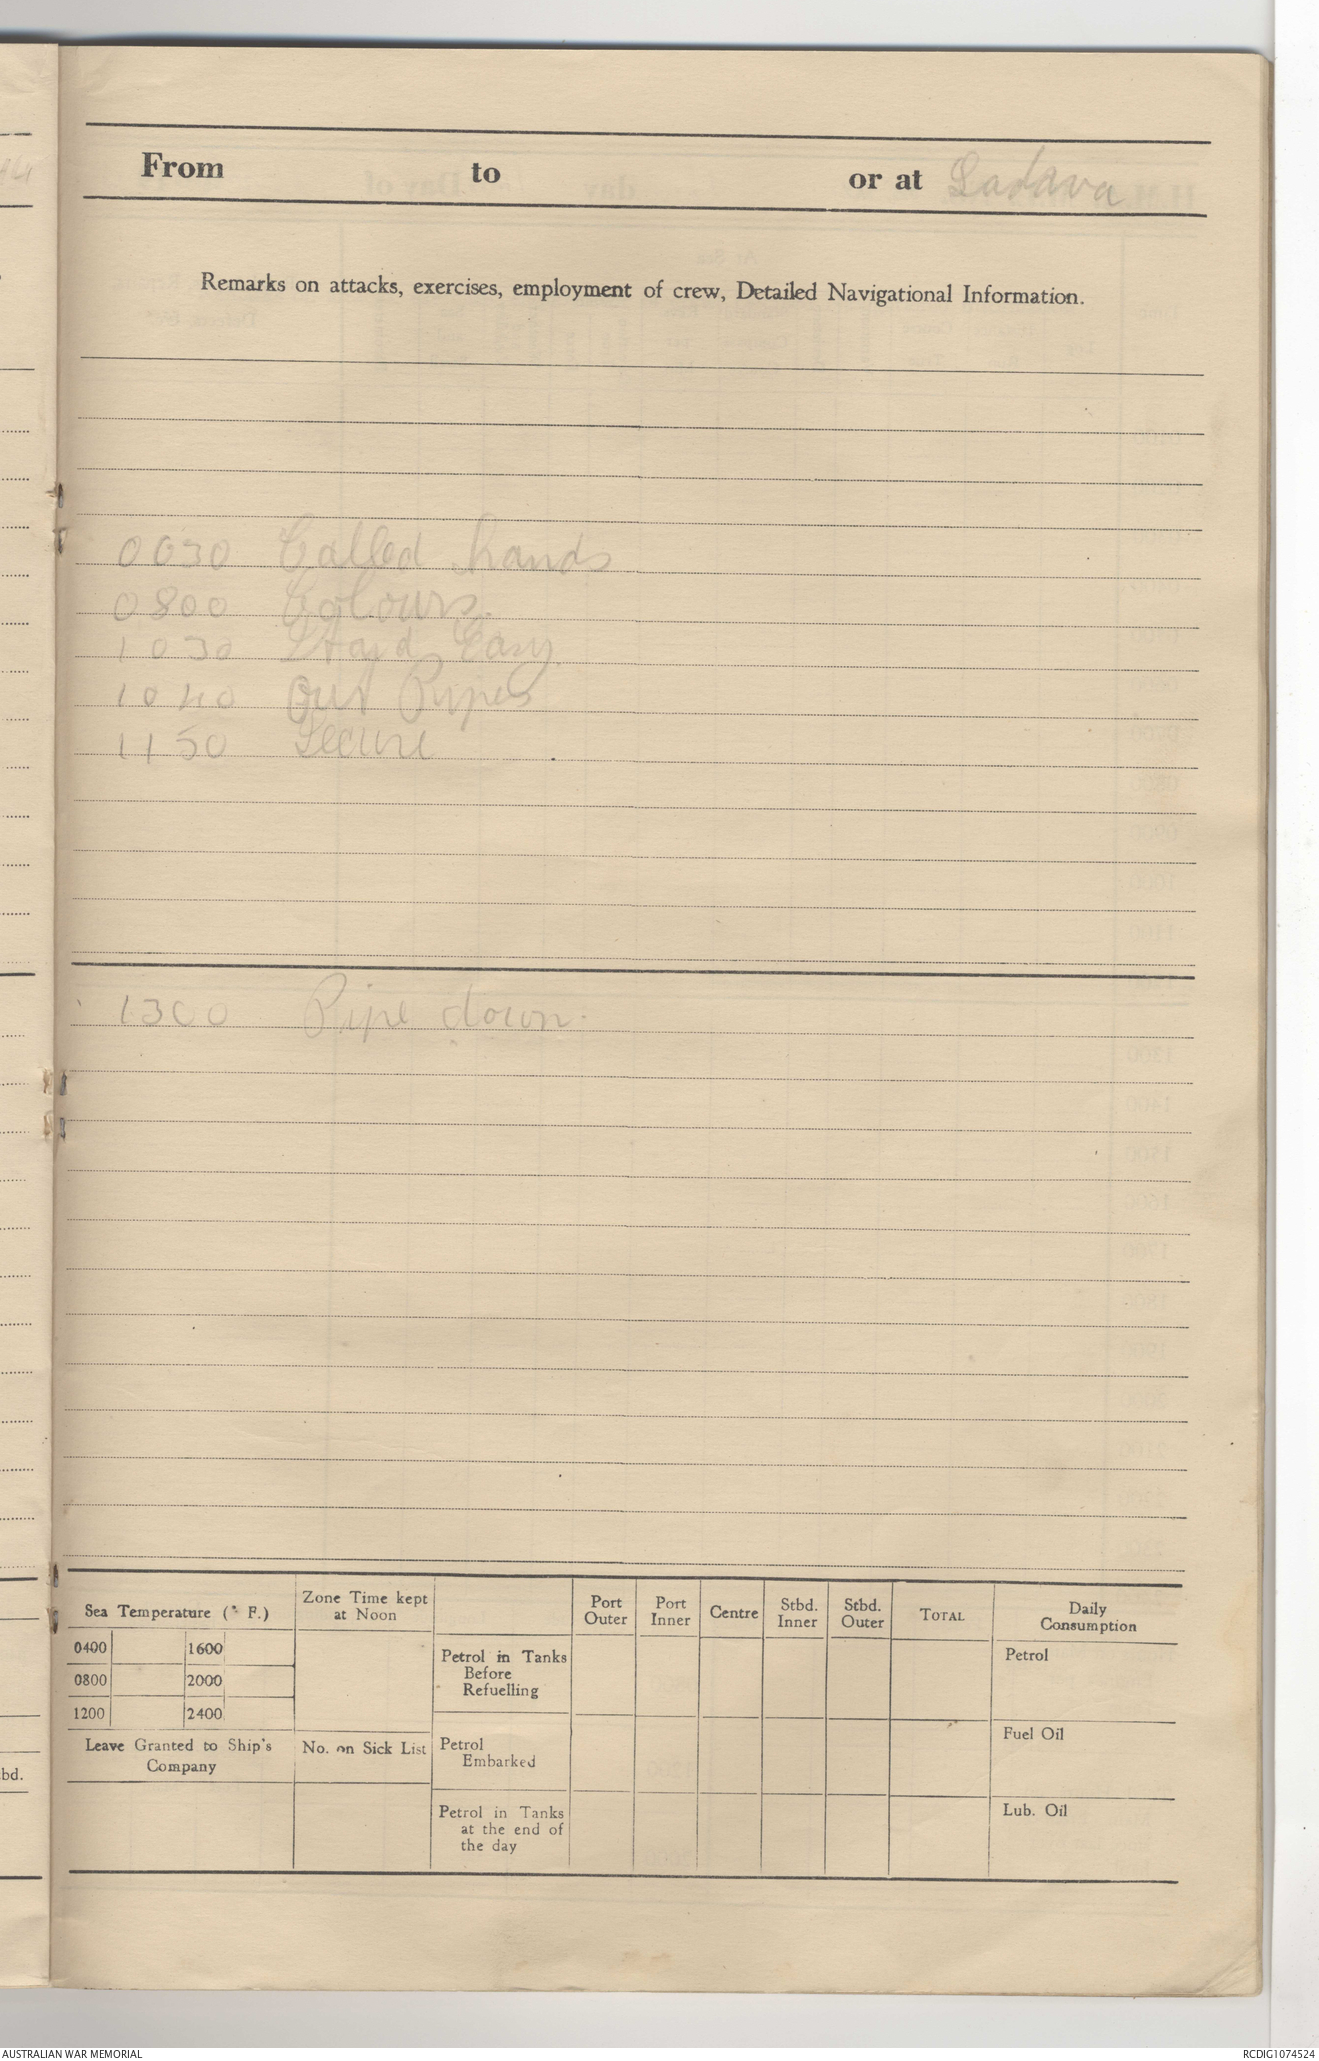 From to or at Ladava
Remarks on attacks, exercises, employment of crew, Detailed Navigational Information.
0630 Called hands
0800 Colours.
1030 Stand Easy
1040 Out Pipes
1150 Secure
1300 Pipe down.
Sea Temperature (° F.)
0400 1600
0800 2000
1200 2400
Leave Granted to Ship's
Company
Zone Time kept
at Noon
No. on Sick List
Port
Outer
Port
Inner
Centre
Stbd.
Inner
Stbd.
Outer
TOTAL
Daily
Consumption
Petrol in Tanks
Before
Refuelling
Petrol
Embarked
Petrol in Tanks
at the end of
the day
Petrol
Fuel Oil
Lub. Oil
bd.
AUSTRALIAN WAR MEMORIAL
RCDIG1074524